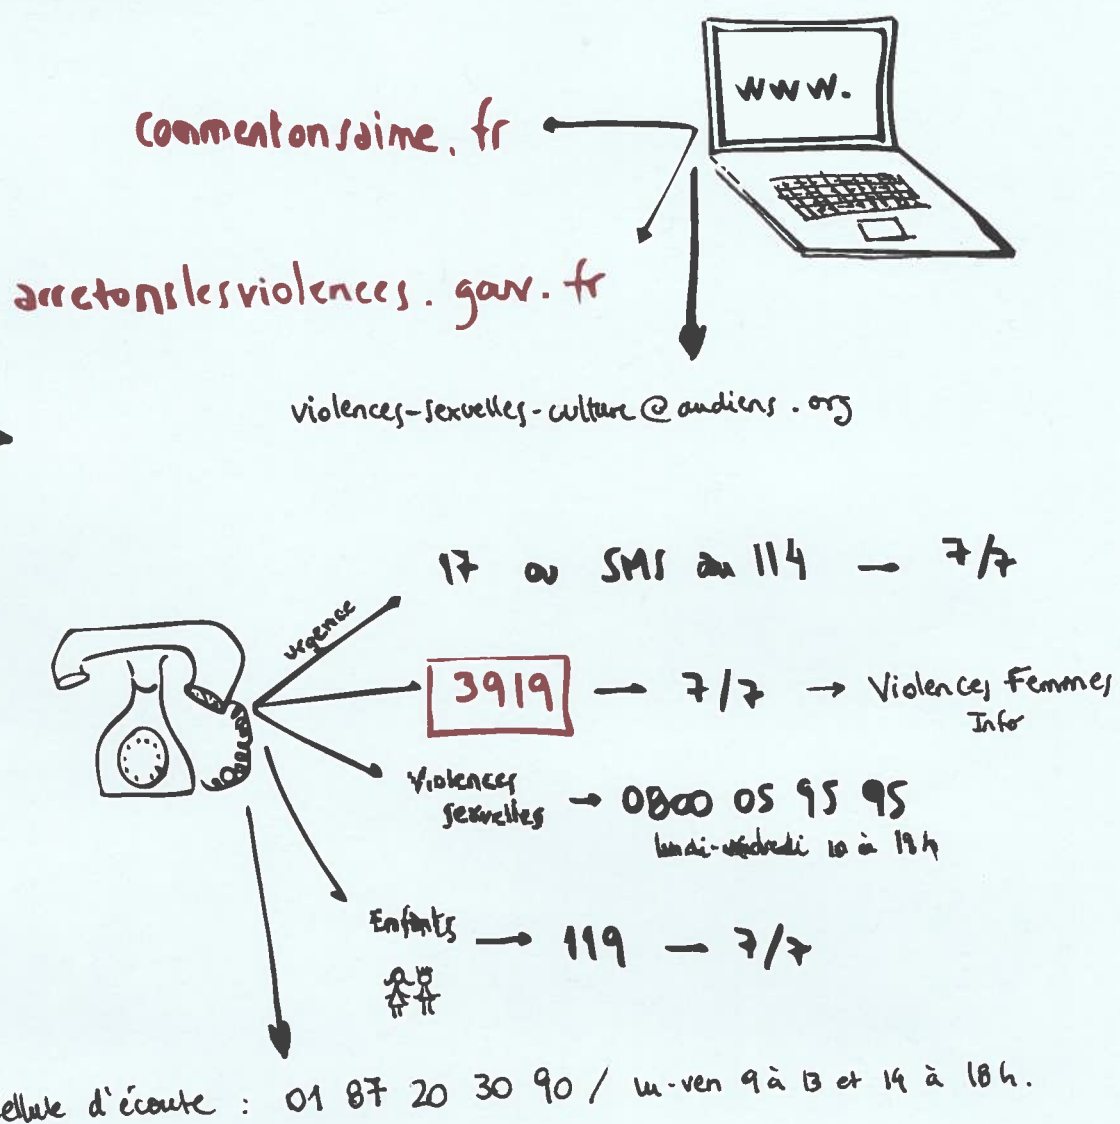 www.
commentonsaime.fr
arretonslesviolences.gouv.fr
violences-sexuelles-culture@audiens.org
urgence
17 ou SMS au 114 — 7/7
3919 → 7/7 → Violences Femmes
Info
Violences
sexuelles → 0800 05 95 95
lundi-vendredi 10 à 19h
Enfants → 119 — 7/7
cellule d'écoute : 01 87 20 30 90 / lu-ven 9 à 13 et 14 à 18h.